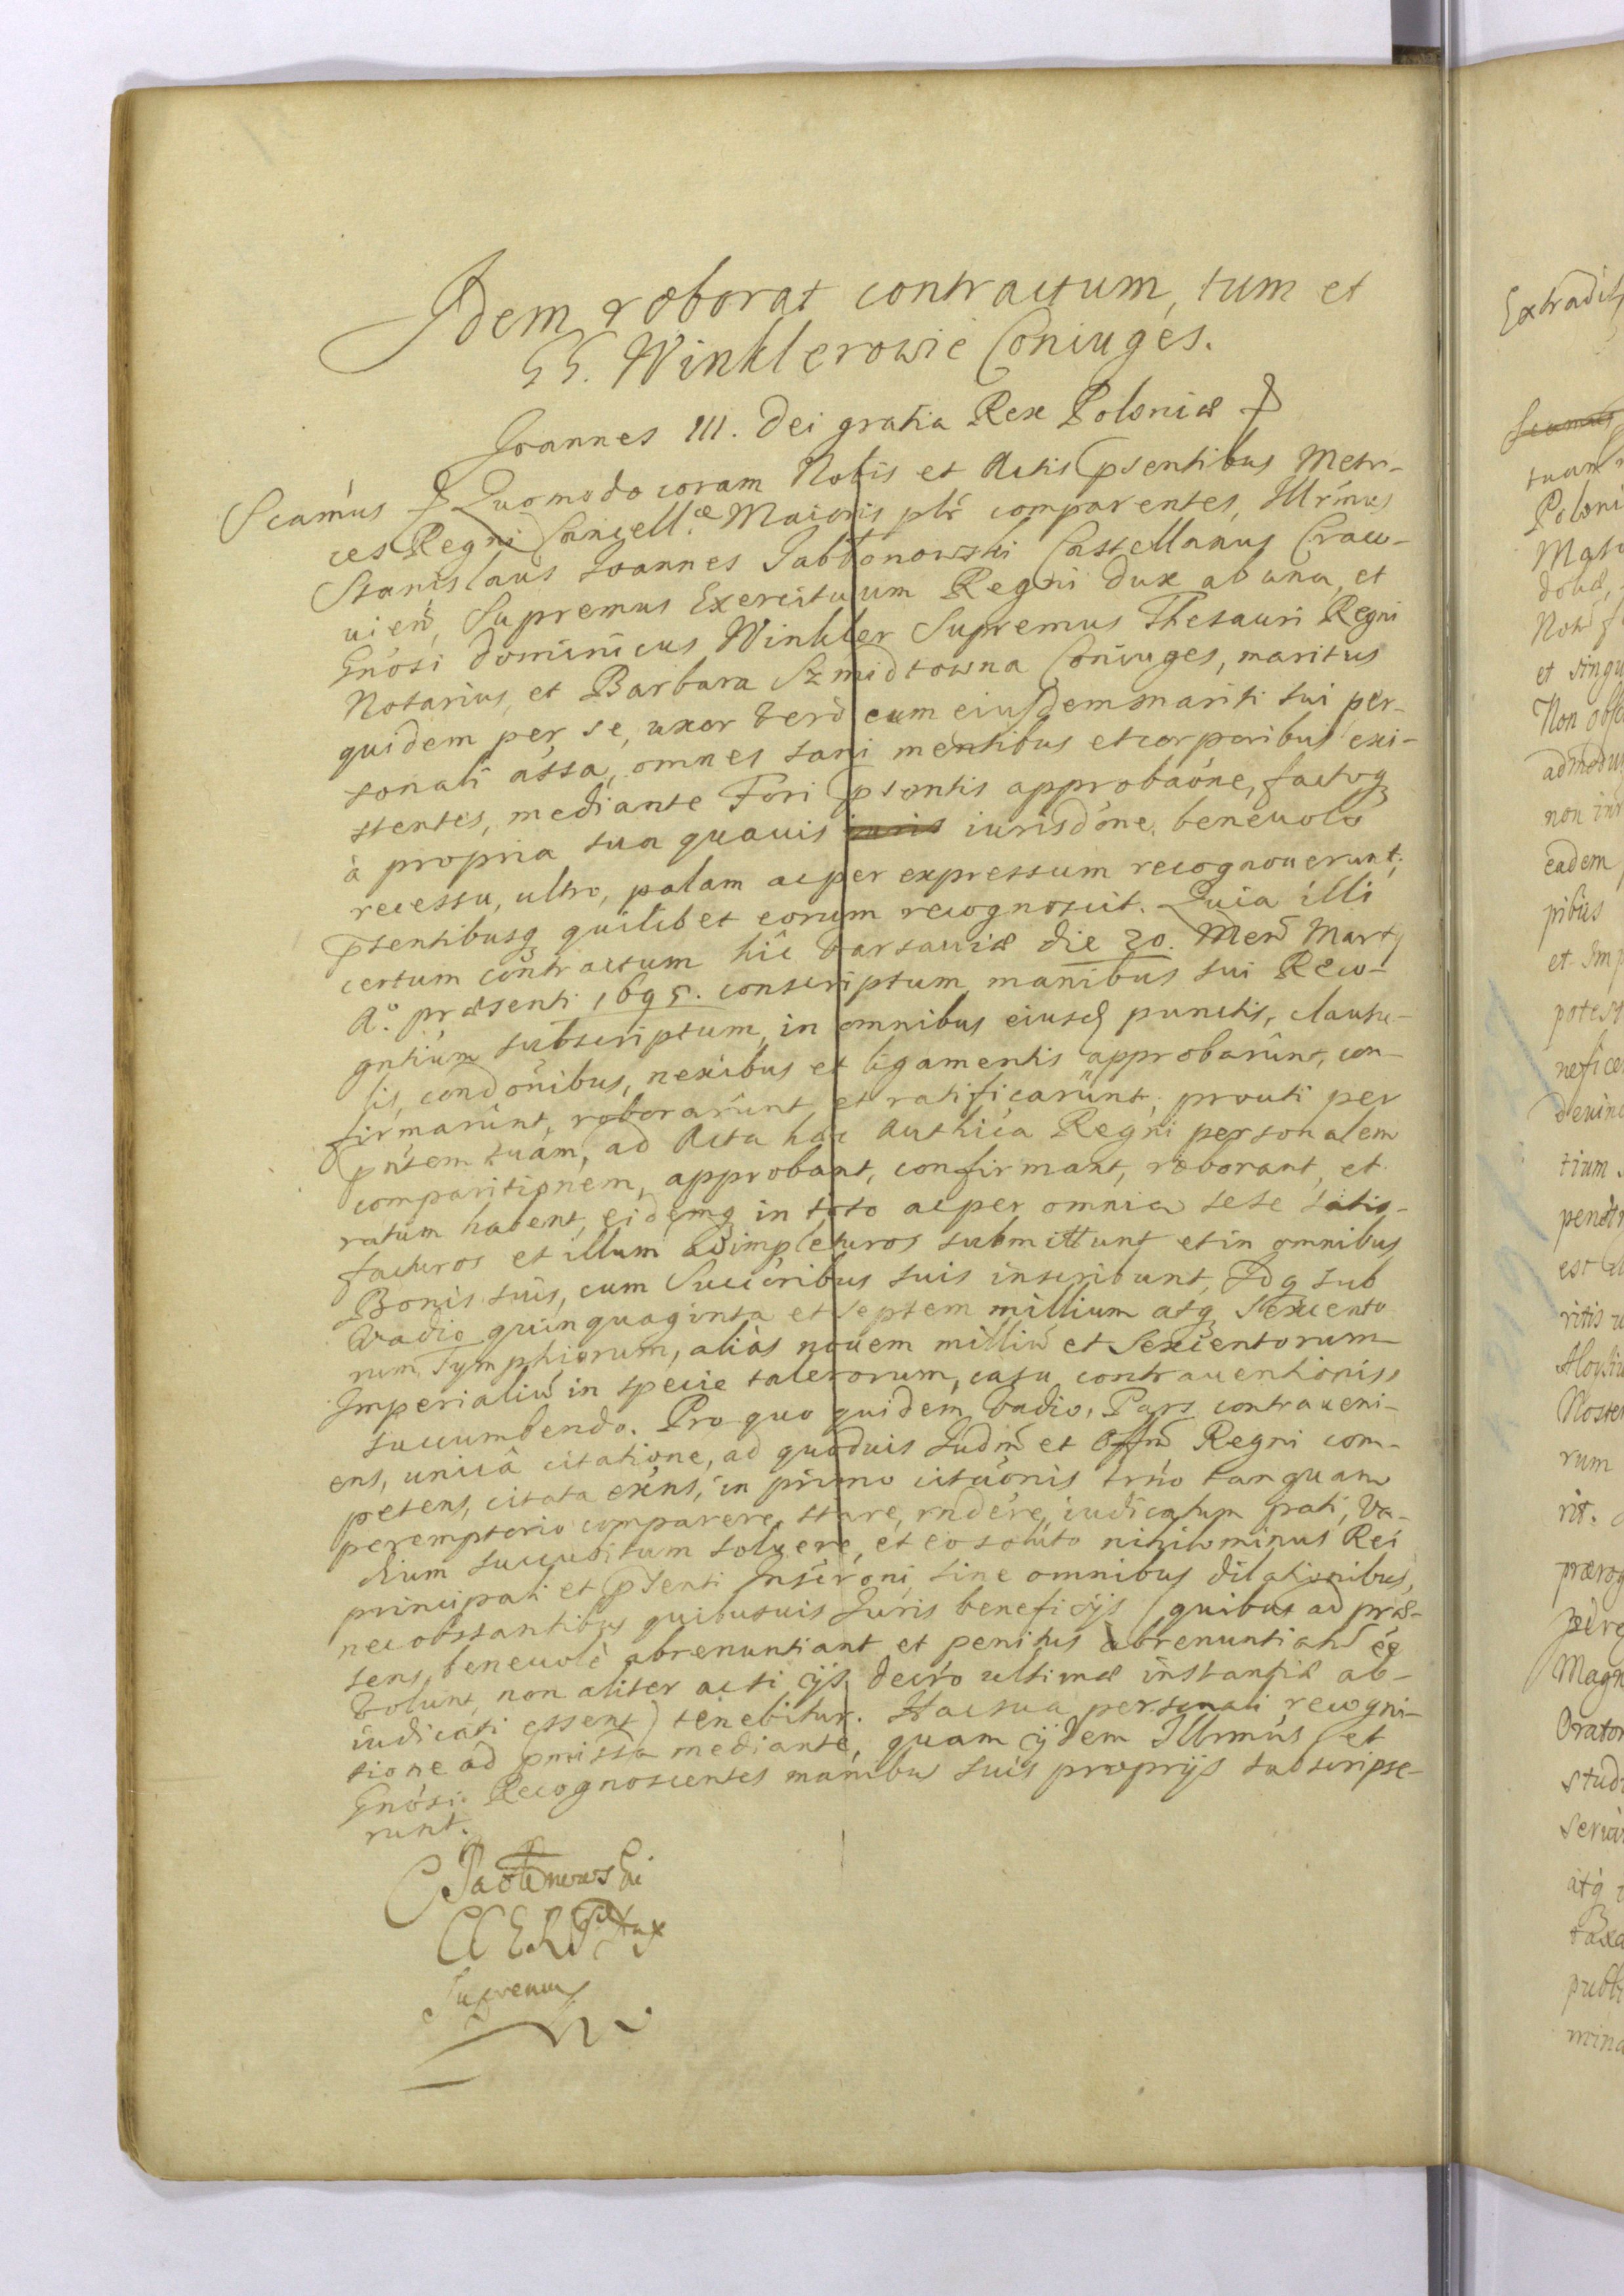 Idem roborat contractum, tum et
GG. Winklerowie Coniuges.
Joannes III. Dei gratia Rex Poloniæ
Scamus Quomodo coram Nobis et Actis pſentibus Metri-
ces Regni Cancell.æ Maioris plr comparentes, Illrmus
Stanislaus Joannes Jabłonowski Castellanus Craco-
vien, Supremus Exercituum Regni Dux ab una, et
Gnosi Dominicus Winkler Supremus Thesauri Regni
Notarius, et Barbara Szmidtowna Coniuges, maritus
quidem per se, uxor vero cum eiusdem mariti sui per-
sonali assa, omnes sani mentibus et corporibus exi-
stentes, mediante Fori pſentis approbaone, factoq
à propria sua quavis iuris iurisdone, benevolo
recessu, ultro, palam ac per expressum recognoverunt,
pſentibusq quilibet eorum recognoscit. Quia illi
certum contractum hic Varsaviæ die 20. Men Martij
Ao. præsenti 1695. conscriptum manibus sui Reco-
gntium subscriptum, in omnibus eiusd punctis, clausu-
lis, condonibus, nexibus et ligamentis approbarunt, con-
firmarunt, roborarunt et ratificarunt, prouti per
pntem suam, ad Acta hæc Authica Regni personalem
comparitionem, approbant, confirmant, roborant, et
ratum habent, eidemq in toto ac per omnia sese satis-
facturos et illum adimpleturos submittunt et in omnibus
Bonis suis, cum Succoribus suis inscribunt, Idq sub
vadio quinquaginta et septem millium atq sexcento
rum Tymphiorum, alias novem milliu et sexcentorum
Imperialiu in specie talerorum, casu contraventionis
succumbendo. Pro quo quidem vadio, Pars contraveni-
ens, unicâ citatione, ad quoduis Iudm et Offm Regni com-
petens, citata exens, in primo citaonis trno tanquam
peremptorio comparere, stare, rndere, iudicatum pati, va-
dium succubitum solvere, et eo soluto nihilominus Rei
principali et pſenti Inscroni, sine omnibus dilationibus,
nec obstantibus quibusuis Iuris beneficijs (quibus ad præ-
sens, benevolè abrenuntiant et penitus abrenuntiati ee
volunt, non aliter acti ijs decro ultimæ instantiæ ab-
iudicati essent) tenebitur. Hac sua personali recogni-
tione ad pmissa mediante, quam ijdem Illrmus et
Gnosi Recognoscentes manibus suis proprijs subscripse-
runt.
Supremus
Extradit
Scamus
tuam
Poloni
et singu
eadem
pibus
tium
rum
rit.
Magn
Orator
stud